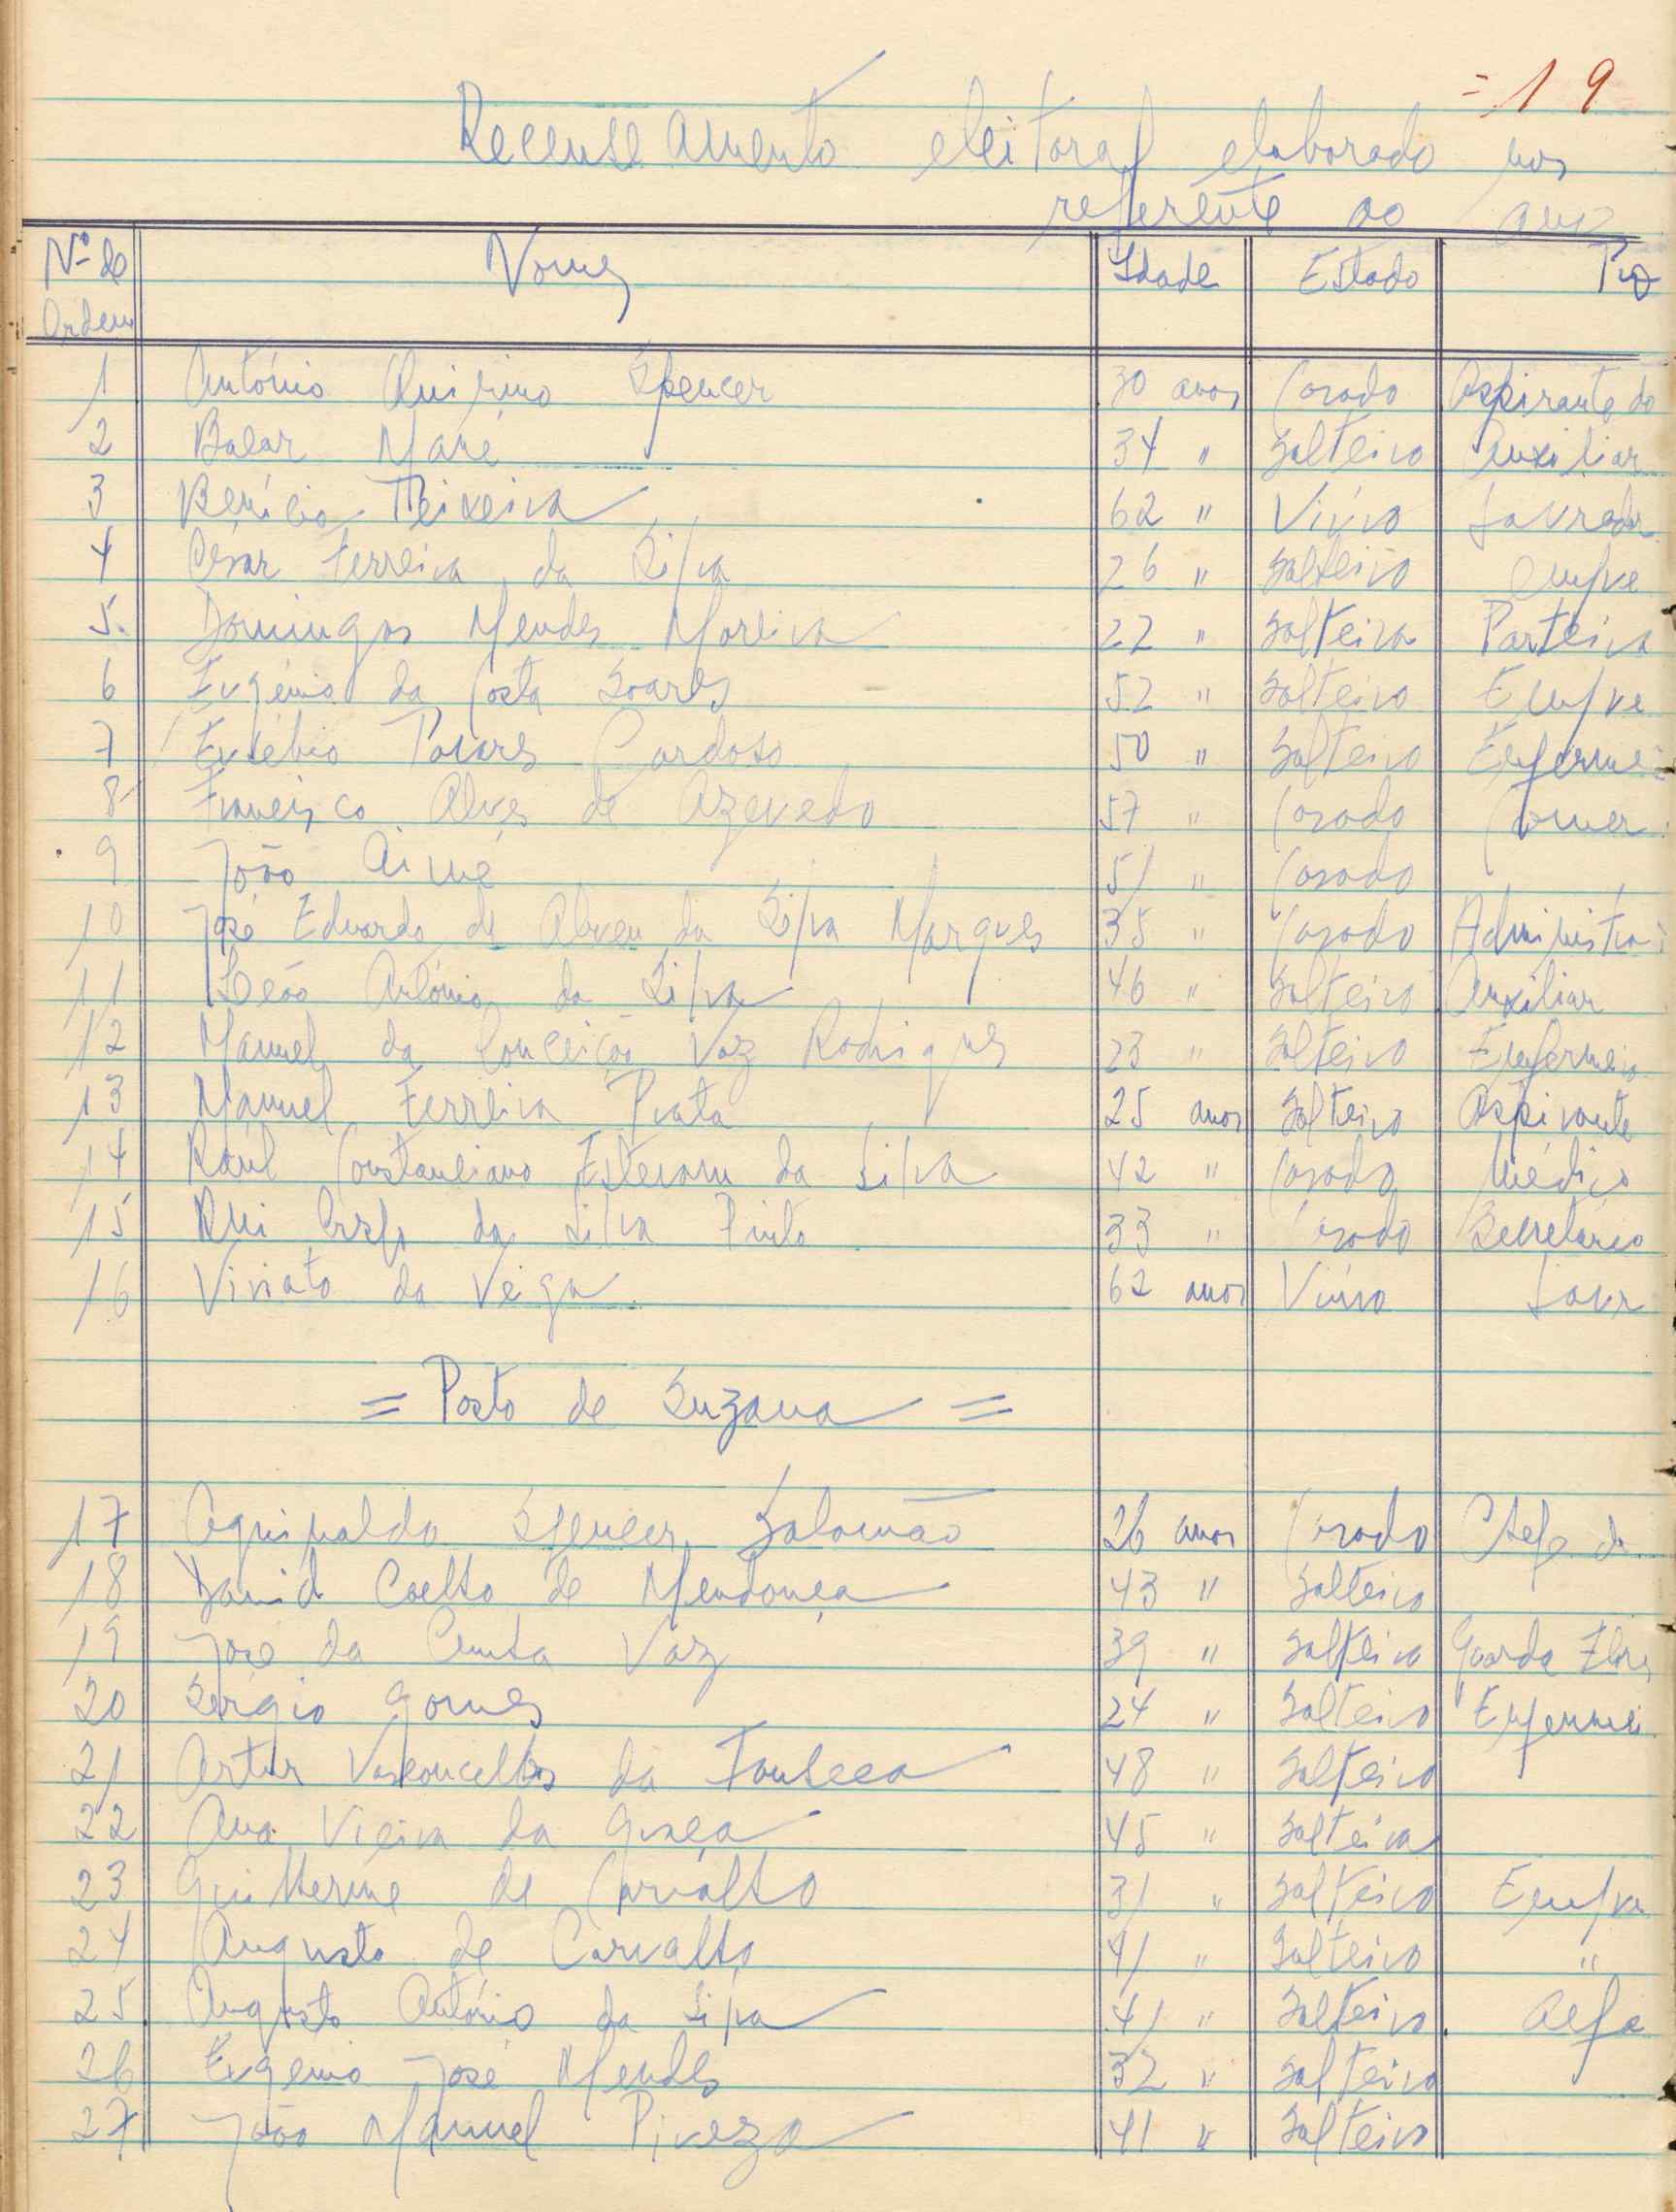 = 19
Recenseamento eleitoral elaborado nos
referente ao ano
Nº de Ordem Nomes Idade Estado Pro
1 António Quirino Spencer 30 anos Casado Aspirante do
2 Balar Mané 34 " Solteiro Auxiliar
3 Benício Teixeira 62 " Viúvo Lavrador
4 César Ferreira da Silva 26 " Solteiro Empre
5 Domingas Mendes Moreira 22 " Solteira Parteira
6 Eugénio da Costa Soares 52 " Solteiro Empre
7 Eusébio Tavares Cardoso 50 " Solteiro Enfermei
8 Francisco Alves de Azevedo 57 " Casado Comer
9 João Aimé 51 " Casado
10 José Eduardo de Abreu da Silva Marques 35 " Casado Administra
11 Leão António da Silva 46 " Solteiro Auxiliar
12 Manuel da Conceição Vaz Rodrigues 23 " Solteiro Enfermeiro
13 Manuel Ferreira Prata 25 anos Solteiro Aspirante
14 Raúl Constanciano Estevam da Silva 42 " Casado Médico
15 Rui da Silva Pinto 33 " Casado Secretário
16 Viriato da Veiga 62 anos Viúvo Lavr
= Posto de Suzana =
17 Aguinaldo Spencer Salomão 26 anos Casado Chefe de
18 David Coelho de Mendonça 43 " Solteiro
19 José da Cunha Vaz 39 " Solteiro Guarda Flores
20 Sérgio Gomes 24 " Solteiro Enfermei
21 Artur Vasconcellos da Fonseca 48 " Solteiro
22 Ana Vieira da Graça 45 " Solteira
23 Guilherme de Carvalho 31 " Solteiro Empre
24 Augusto de Carvalho 41 " Solteiro "
25 Augusto António da Silva 41 " Solteiro Alfa
26 Eugénio José Mendes 32 " Solteiro
27 João Manuel 41 " Solteiro